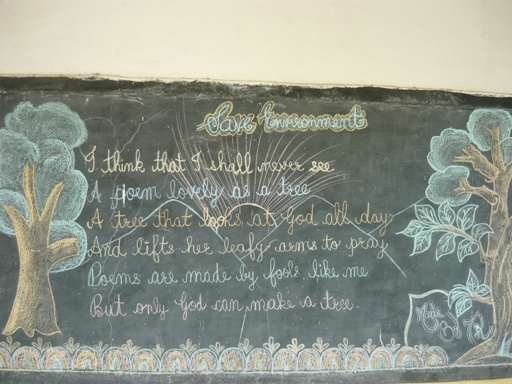 Save Environment
I think that I shall never see
A poem lovely as a tree
A tree that looks at God all day
And lifts her leafy arms to pray
Poems are made by fools like me
But only God can make a tree.
Made